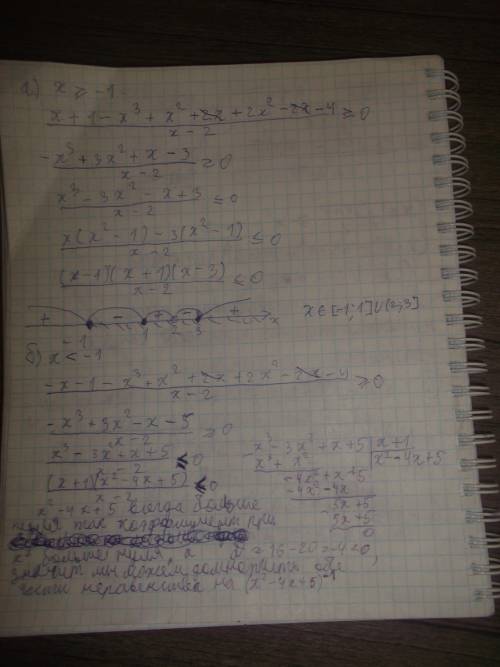 а) x ≥ -1
(x + 1 - x³ + x² + 2x + 2x² - 2x - 4)/(x - 2) ≥ 0
(-x³ + 3x² + x - 3)/(x - 2) ≥ 0
(x³ - 3x² - x + 3)/(x - 2) ≤ 0
(x(x² - 1) - 3(x² - 1))/(x - 2) ≤ 0
((x - 1)(x + 1)(x - 3))/(x - 2) ≤ 0
+ - + - + x
-1 1 2 3 x ∈ [-1; 1] ∪ (2; 3]
б) x < -1
(-x - 1 - x³ + x² + 2x + 2x² - 2x - 4)/(x - 2) ≥ 0
(-x³ + 3x² - x - 5)/(x - 2) ≥ 0
(x³ - 3x² + x + 5)/(x - 2) ≤ 0
((x + 1)(x² - 4x + 5))/(x - 2) ≤ 0
x³ - 3x² + x + 5 | x + 1
x³ + x² | x² - 4x + 5
-4x² + x + 5
-4x² - 4x
5x + 5
5x + 5
0
x² - 4x + 5 всегда больше
нуля так коэффициент при
x² больше нуля, а D = 16 - 20 = -4 < 0,
значит мы можем домножить обе
части неравенства на (x² - 4x + 5)⁻¹